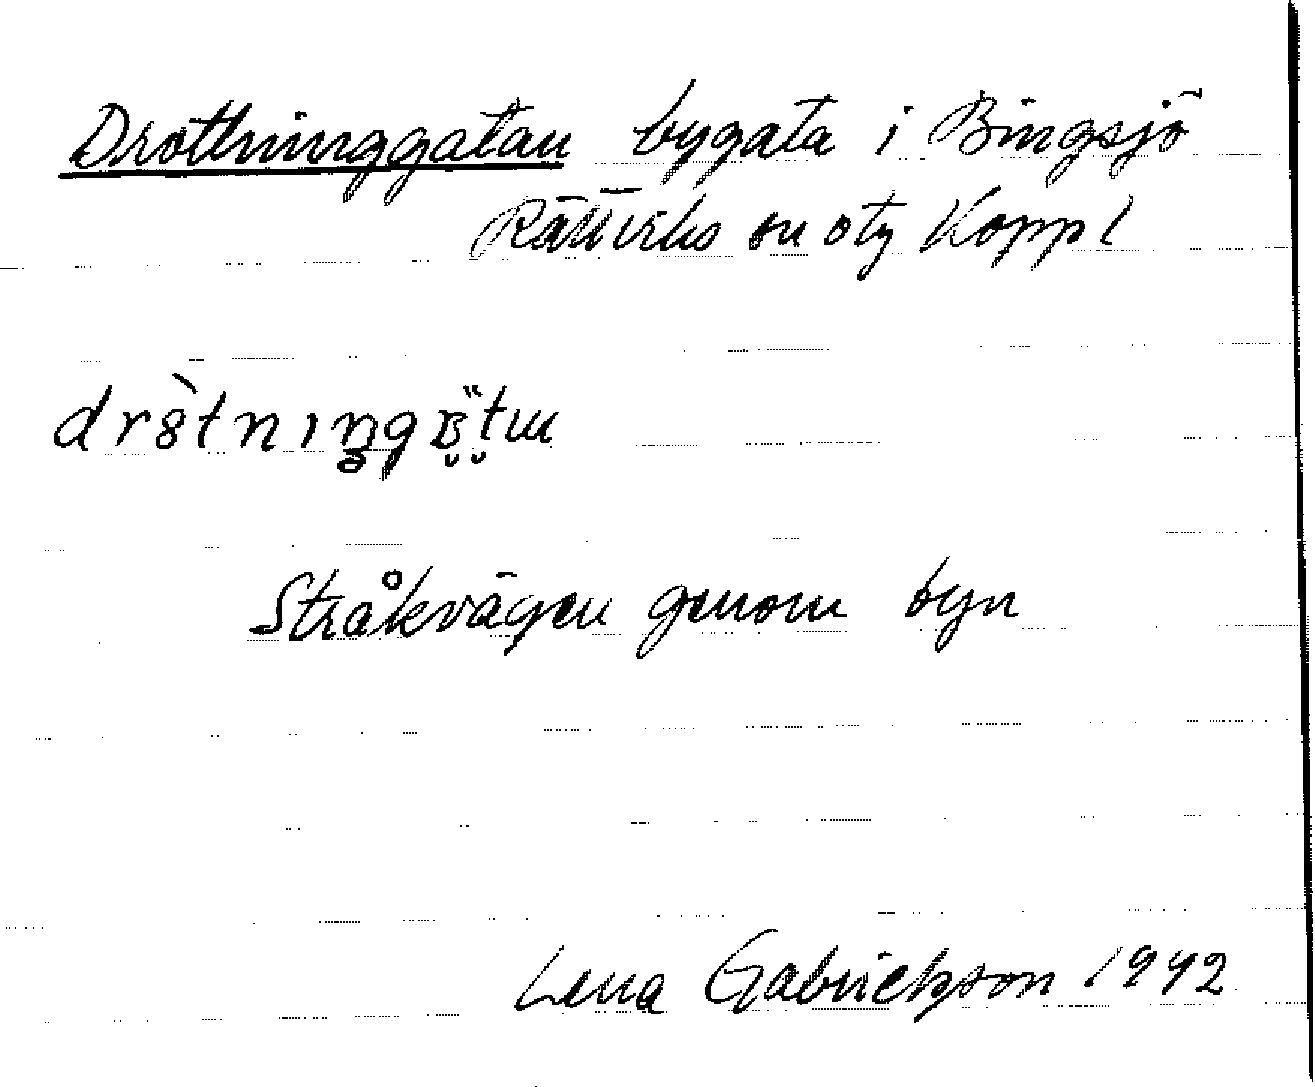 Drottninggatan bygata i Bingsjö
Rättviks sn oty Koppl
Stråkvägen genom byn
Lena Gabrielsson 1942